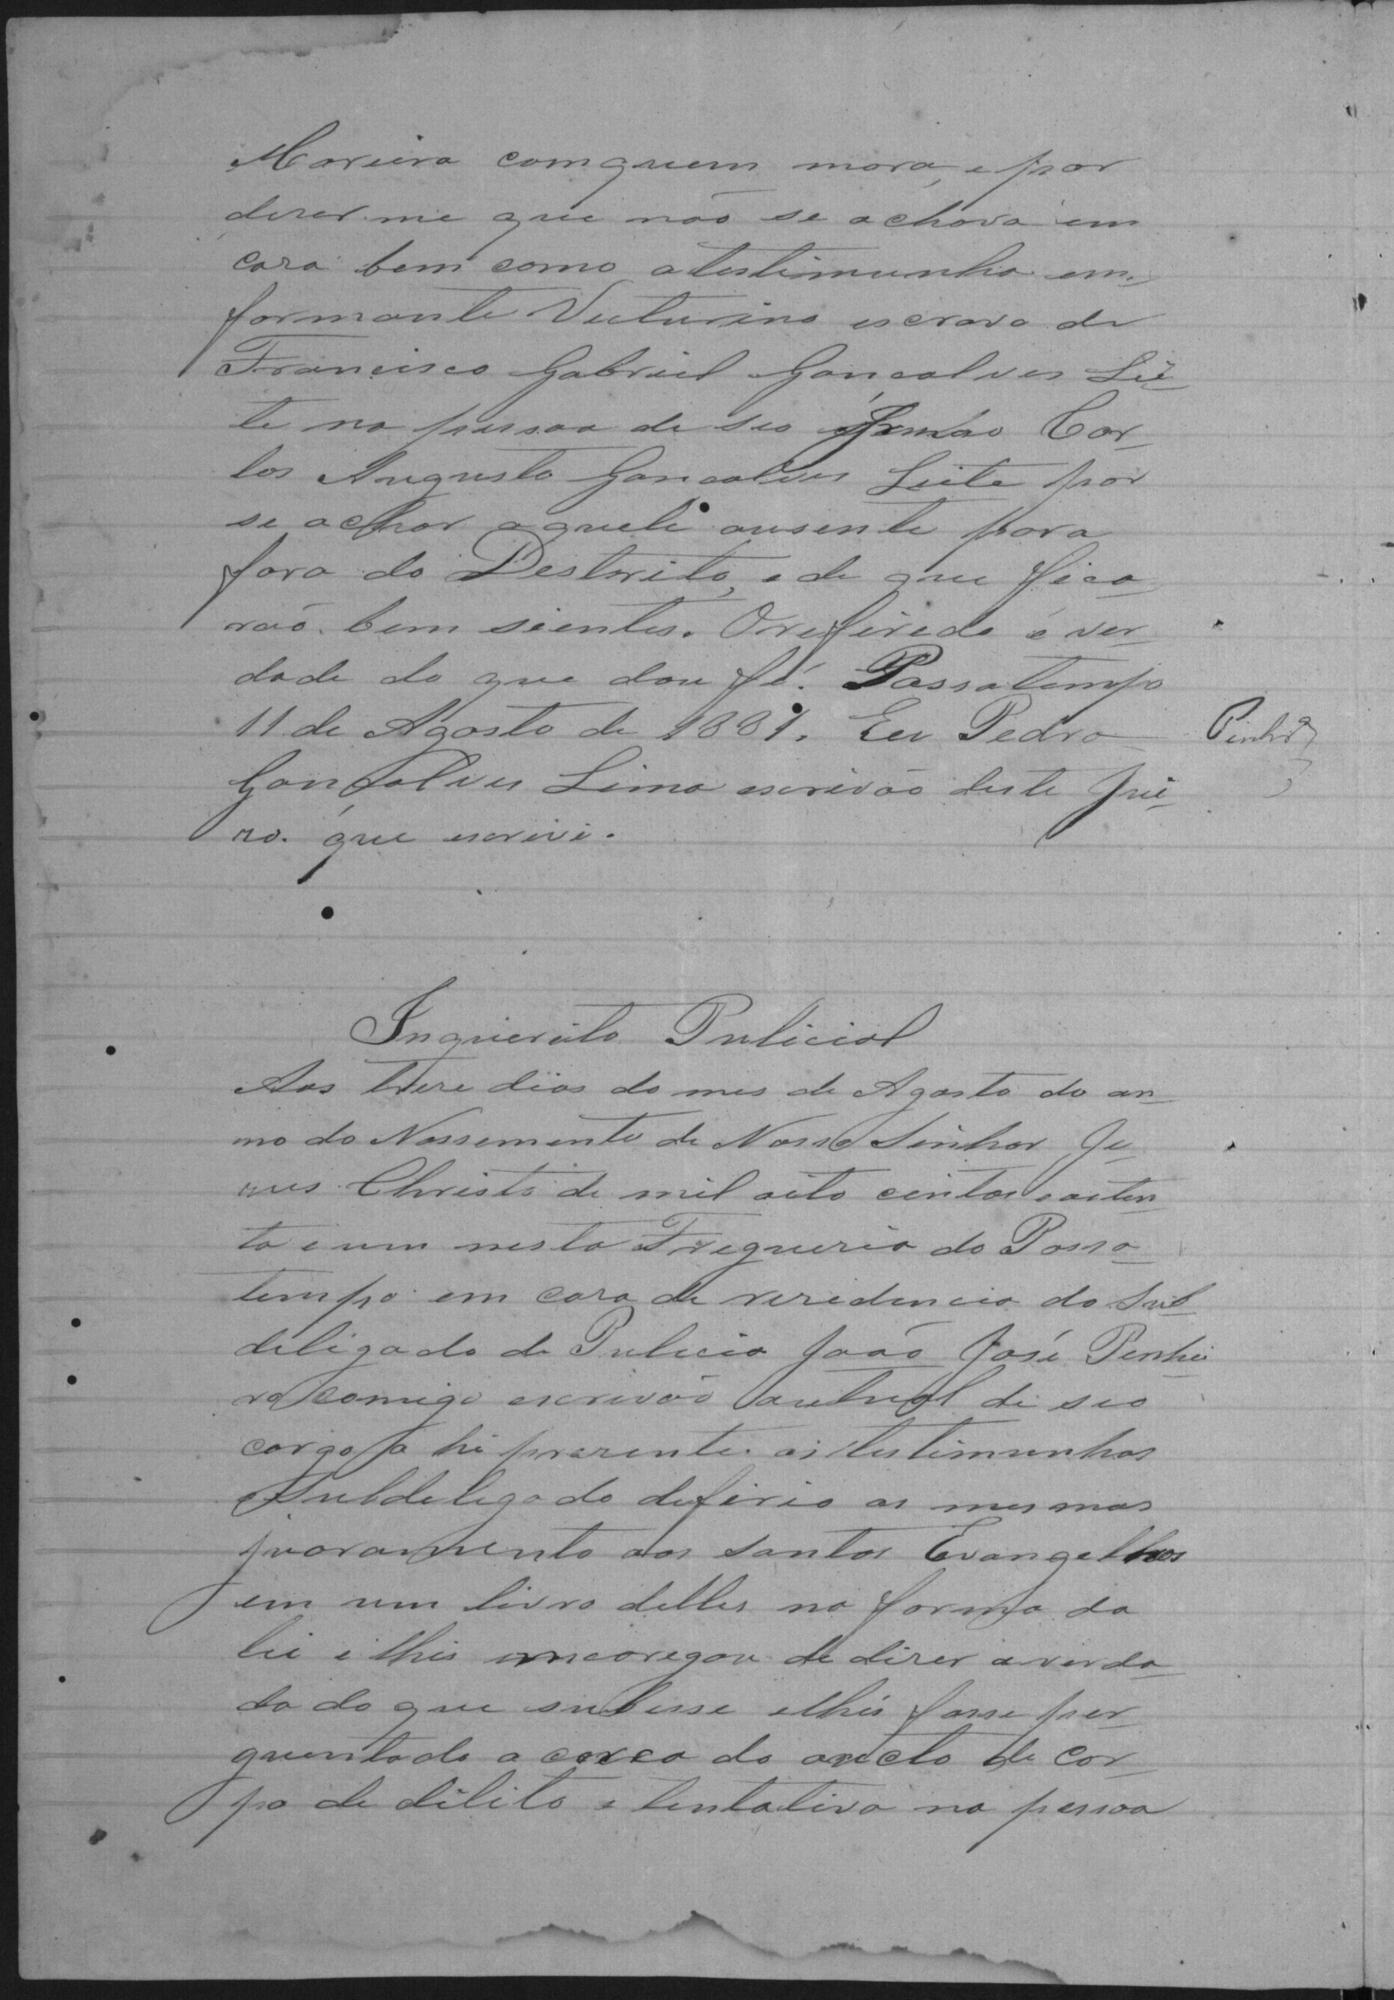 Moreira com quem mora, e por
dizer me que não se achava em
caza bem como a testimunha em-
formante Victurino escravo de
Francisco Gabriel Gonçalves Lei-
te na pessoa de seo Irmão Car-
los Augusto Goncalves Leite por
se achar aquele ausente para
fora do Destorito, e de que fica-
rão bem sientes. O refiredo é ver-
dade do que dou fé. Passatempo
11 de Agosto de 1881. Eu Pedro
Pinhrº
Gonçalves Lima escrivão deste Jui-
zo. que escrivi.
Inquierito Pulicial
Aos treze dias do mes de Agosto do an-
no do Nassemento de Nosso Senhor Je-
zus Christo de mil oito centos e oiten-
ta e um nesta Freguezia do Passa-
tempo em caza de rezidencia do Sub-
deligado de Pulicia João José Penhei-
ro comigo escrivão autual de seo
cargo a hi prezente as testimunhas
o Subdelegado defirio as mesmas
juoramento aos Santos Evangelhos
em um livro delles na forma da
lei e lhis encaregou de dizer a verda-
da do que subesse e lhis fosse per-
guentado a cerca do aucto de cor-
po de dilito e tentativa na pessoa